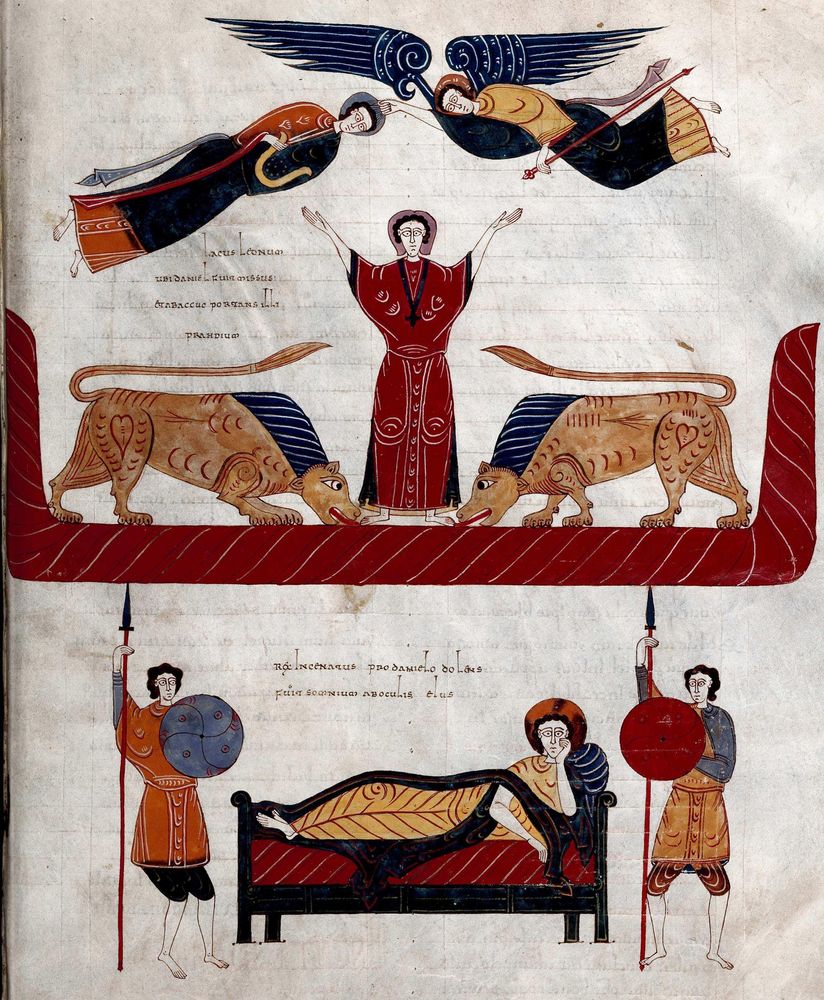 Lacus Leonum
ubi daniel fuit missus:
et abaccuc portans illi
prandium
Rex Incenatus pro danielo dolens
fuit somnium aboculis eius